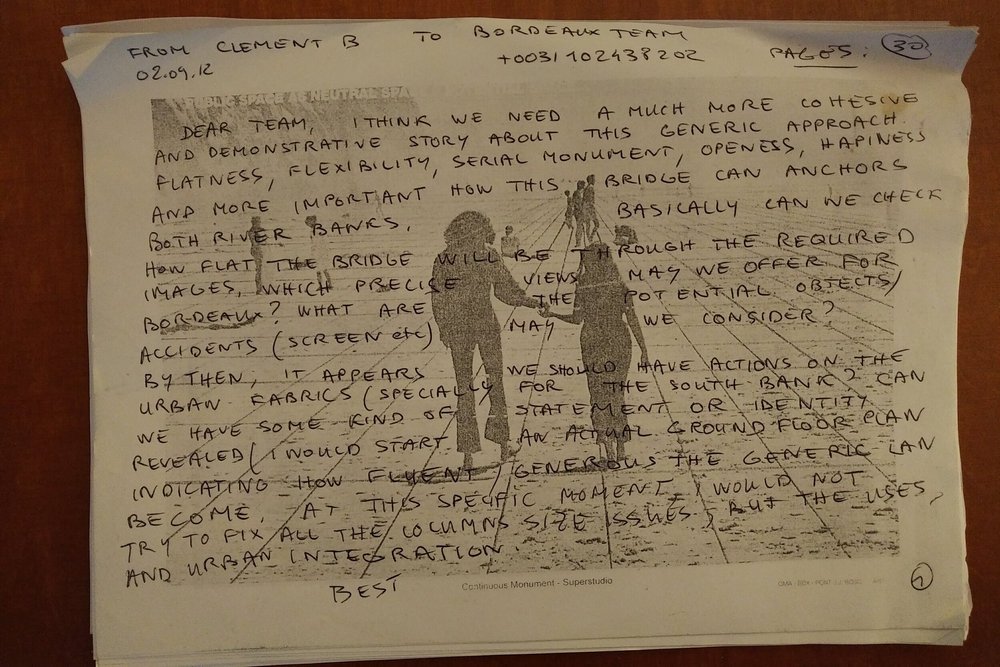 FROM CLEMENT B TO BORDEAUX TEAM
02.09.12 +0031102438202 PAGES: 30
PUBLIC SPACE AS NEUTRAL SPA
DEAR TEAM, I THINK WE NEED A MUCH MORE COHESIVE
AND DEMONSTRATIVE STORY ABOUT THIS GENERIC APPROACH.
FLATNESS, FLEXIBILITY, SERIAL MONUMENT, OPENESS, HAPINESS
AND MORE IMPORTANT HOW THIS BRIDGE CAN ANCHORS
BOTH RIVER BANKS. BASICALLY CAN WE CHECK
HOW FLAT THE BRIDGE WILL BE THROUGH THE REQUIRED
IMAGES, WHICH PRECISE VIEWS MAY WE OFFER FOR
BORDEAUX? WHAT ARE THE POTENTIAL OBJECTS/
ACCIDENTS (SCREEN etc) MAY WE CONSIDER?
BY THEN, IT APPEARS WE SHOULD HAVE ACTIONS ON THE
URBAN FABRICS (SPECIALLY FOR THE SOUTH BANK? CAN
WE HAVE SOME KIND OF STATEMENT OR IDENTITY
REVEALED (I WOULD START AN ACTUAL GROUND FLOOR PLAN
INDICATING HOW FLUENT, GENEROUS THE GENERIC CAN
BECOME. AT THIS SPECIFIC MOMENT, I WOULD NOT
TRY TO FIX ALL THE COLUMNS SIZE ISSUES, BUT THE USES,
AND URBAN INTEGRATION.
BEST
Continuous Monument - Superstudio
OMA - BDX - PONT J.J. BOSC